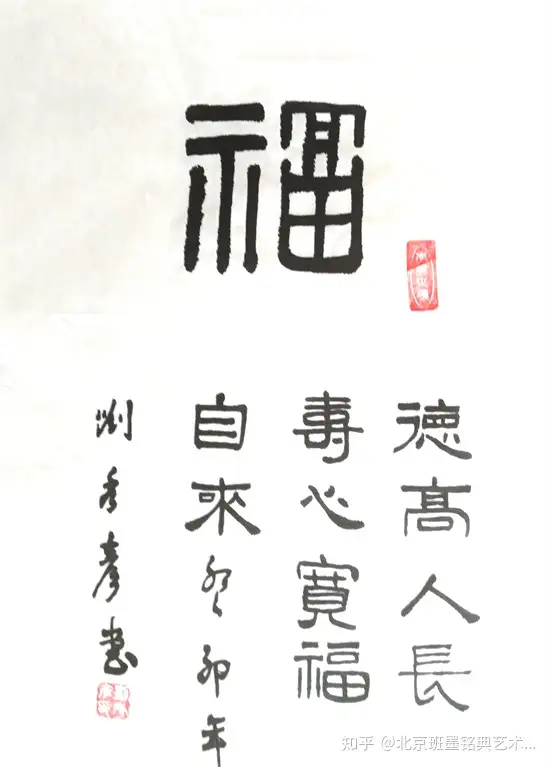 福
德高人長
壽心寬福
自來癸卯年
劉秀彥书
知乎 @北京班墨铭典艺术...